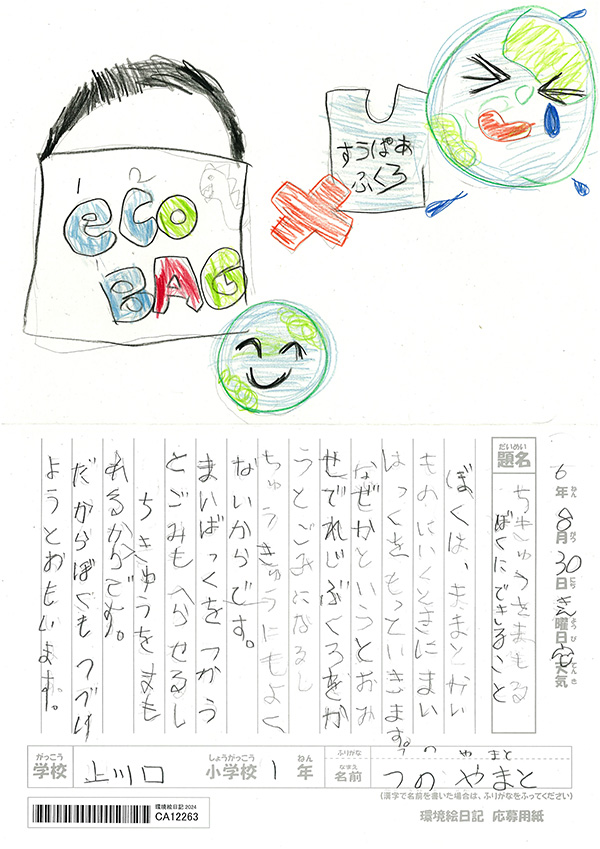 eco
BAG
すうぱあ
ふくろ
6年 8月 30日 きん曜日 天気
ねん がつ にち ようび てんき
だいめい
題名
ちきゅうをまもる
ぼくにできること
ぼくは、ままとかい
ものにいくときにまい
はっくをもっていきます。
なぜかというとおみ
せでれじぶくろをか
うとごみになるし
ちゅうきゅうにもよく
ないからです。
まいばっくをつかう
とごみもへらせるし
ちきゅうをまも
れるからです。
だからぼくもつづけ
ようとおもいます。
がっこう
学校 上川口
しょうがっこう ねん
小学校 1 年
ふりがな つの やまと
なまえ
名前 つの やまと
(漢字で名前を書いた場合は、ふりがなをふってください)
環境絵日記 2024
CA12263
環境絵日記 応募用紙